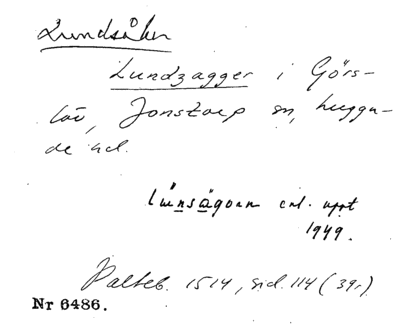 Lundsåker
Lundzagger i Görs-
löv, Jonstorp sn, Luggu-
de hd.
enl. uppt
1949.
Palteb. 1514, sid. 114 (39r)
Nr 6486.